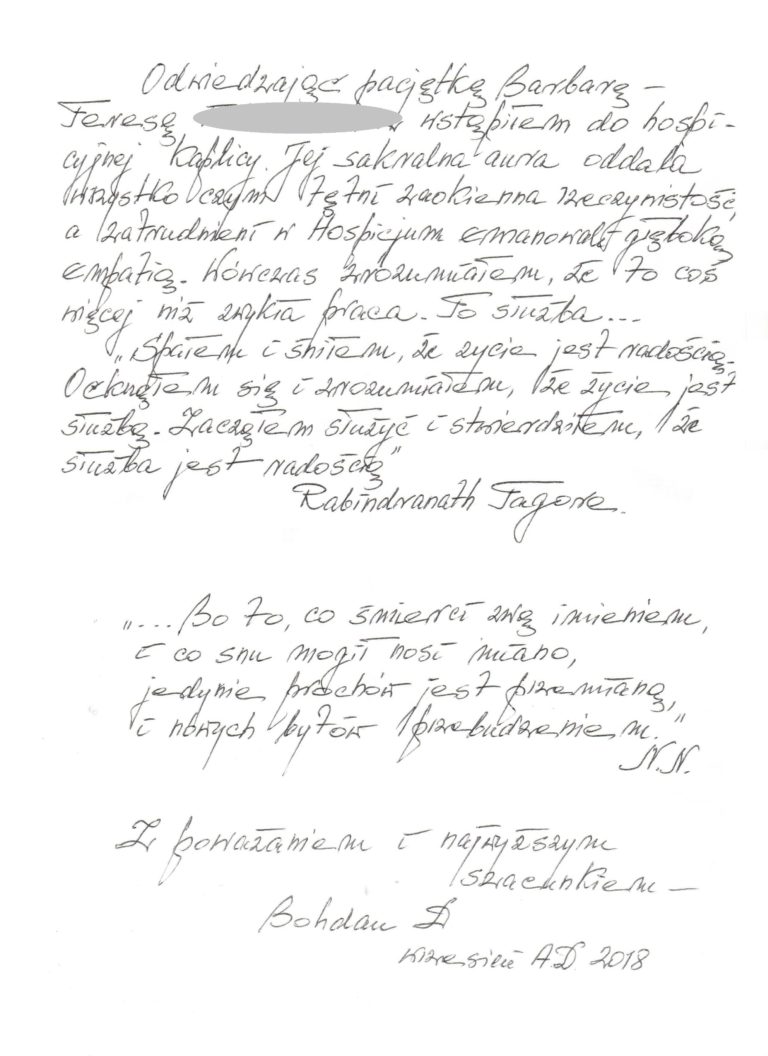 Odwiedzając pacjętkę Barbarę –
Teresę wstąpiłem do hospi-
cyjnej kaplicy. Jej sakralna aura oddala
wszystko czym tętni zaokienna rzeczywistość,
a zatrudnieni w Hospicjum emanowali głęboką
empatią. Wówczas zrozumiałem, że to coś
więcej niż zwykła praca. To służba...
„Spałem i śniłem, że życie jest radością.
Ocknąłem się i zrozumiałem, że życie jest
służbą. Zacząłem służyć i stwierdziłem, że
służba jest radością”
Rabindranath Tagore.
„... Bo to, co śmierci zwą imieniem,
i co snu mogił nosi miano,
jedynie prochów jest przemianą,
i nowych bytów przebudzeniem.”
N.N.
Z poważaniem i najwyższym
szacunkiem –
Bohdan D
wrzesień A.D. 2018